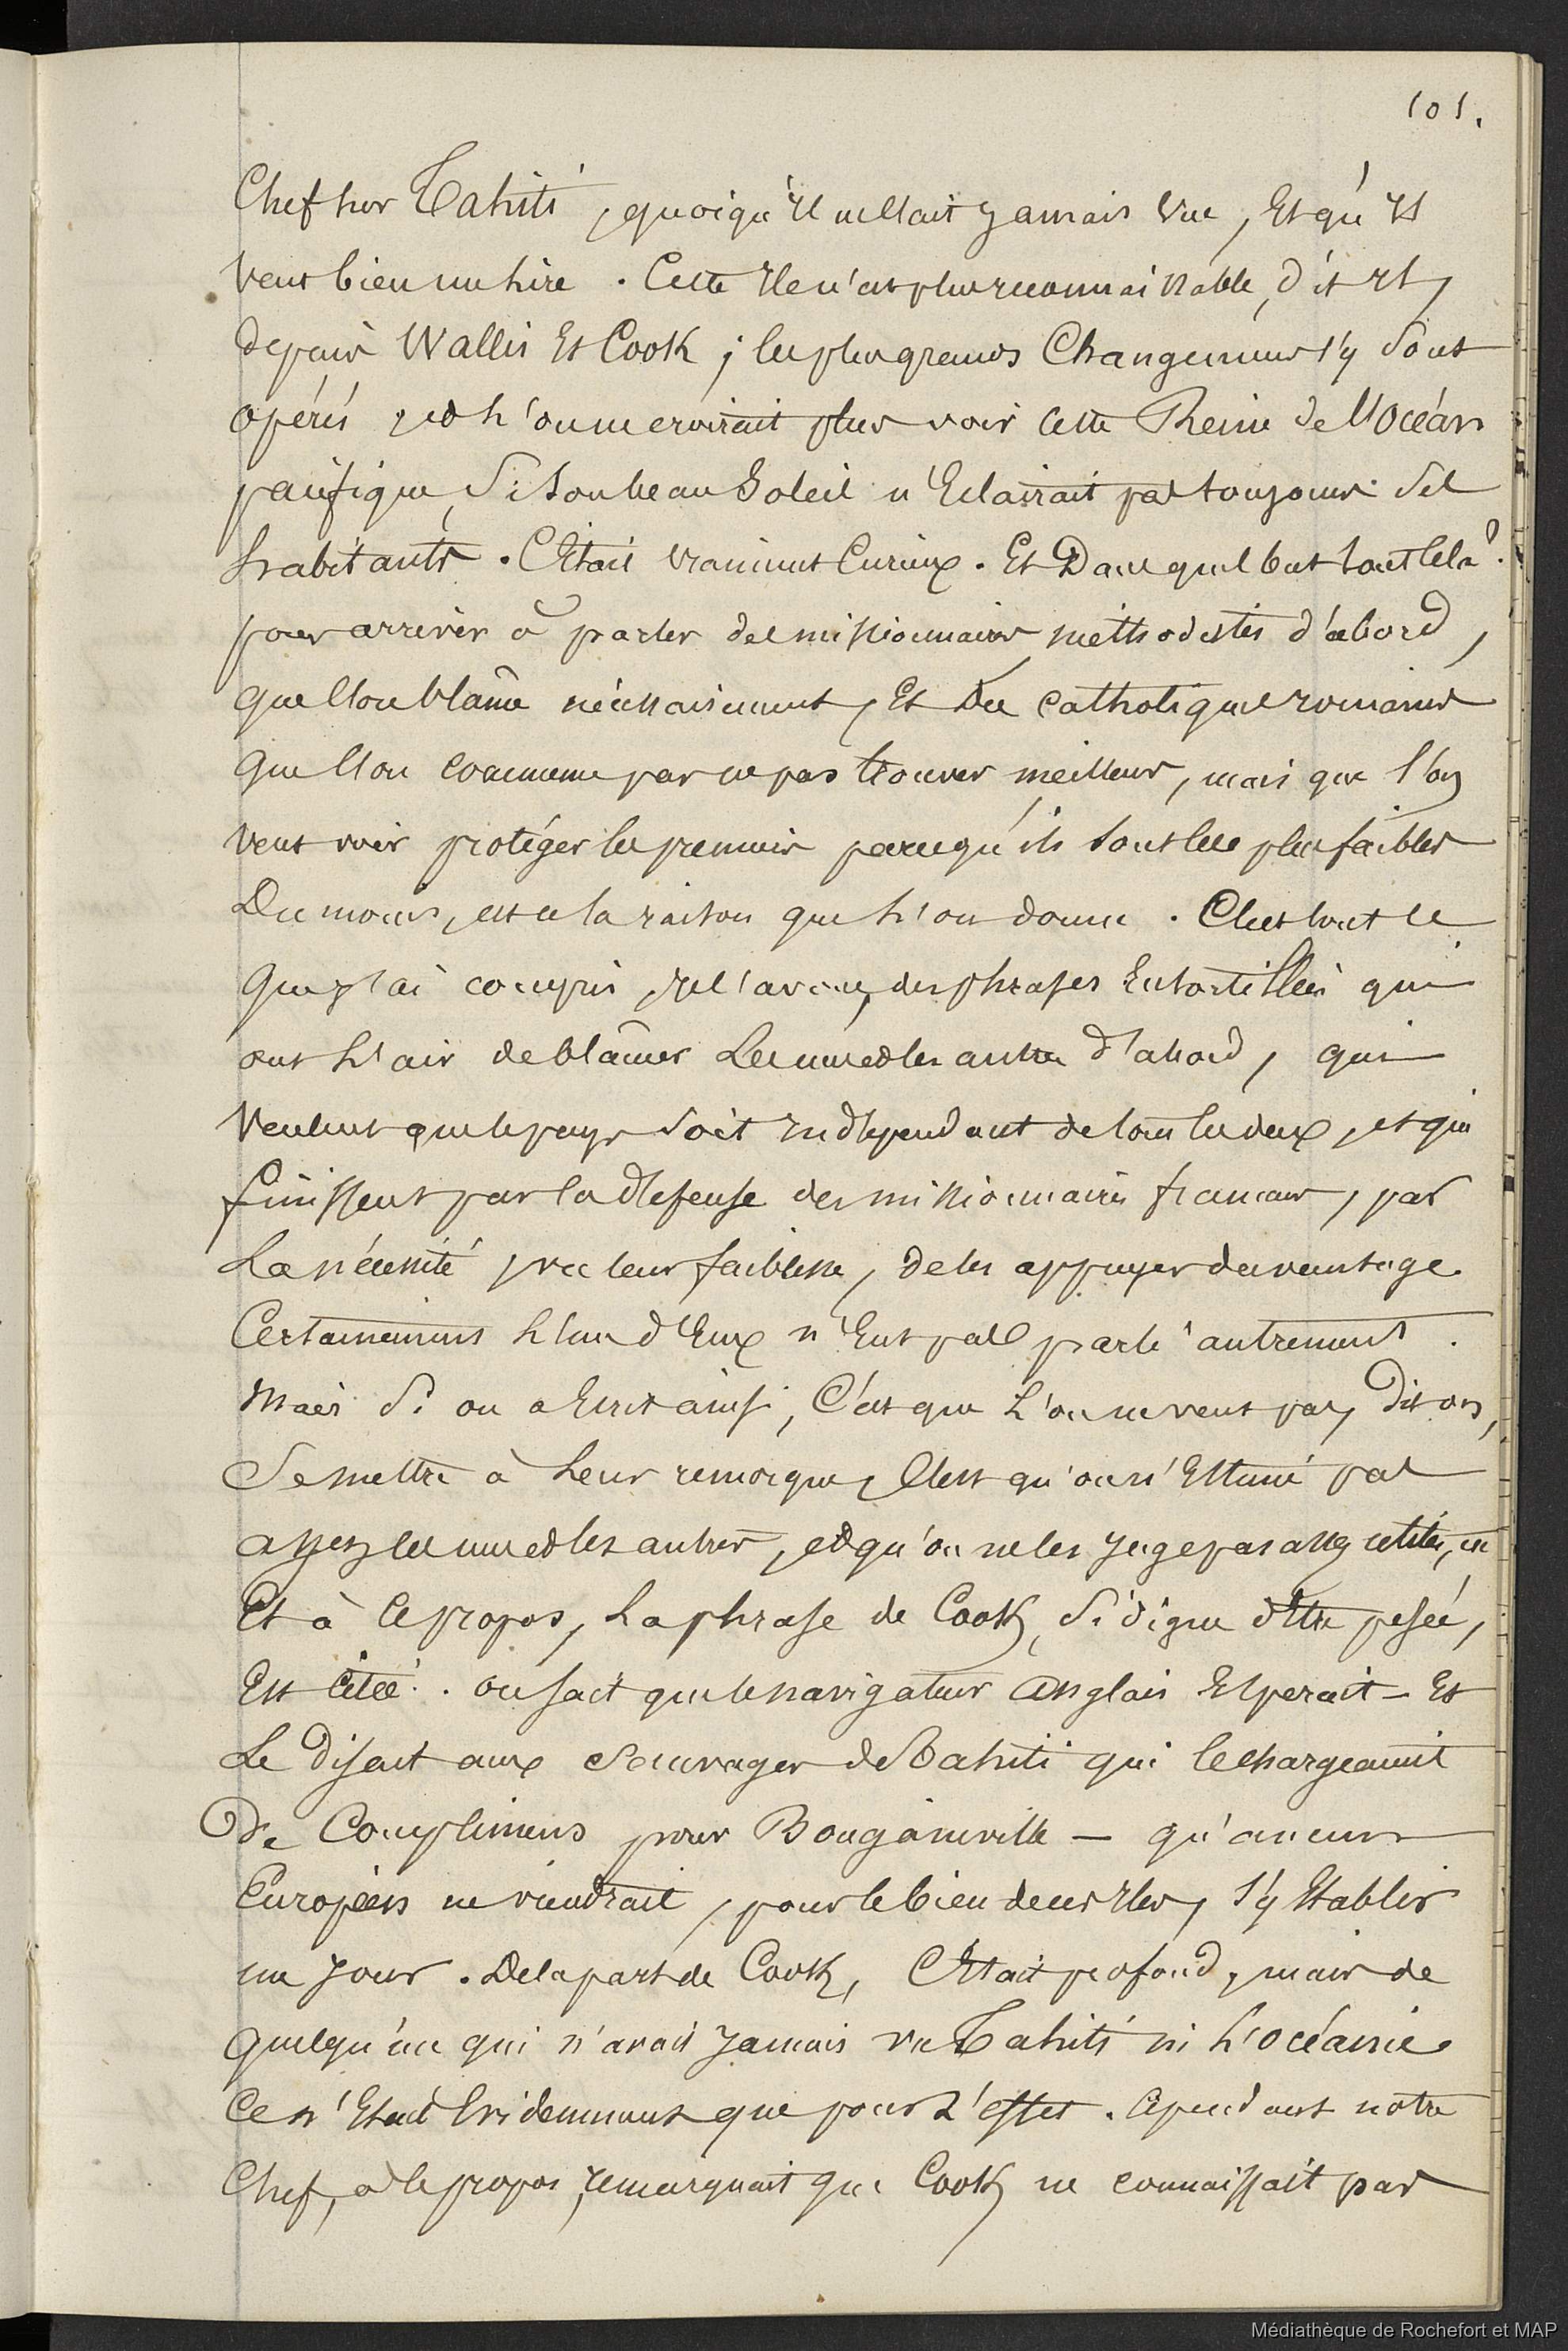 101.
Chef sur Tahiti, quoiqu'il ne l'ait jamais vue, Et qu'il
veut bien me lire. Cette Ile n'est plus reconnaissable, dit il,
depuis Wallis Et Cook ; les plus grands Changemens s'y sont
opérés, et l'on ne croirait plus voir cette Reine de l'Océan
pacifique, Si son beau Soleil n'Eclairait pas toujours ses
habitants. C'Etait vraiment Curieux. Et Dans quel but tout cela ?
pour arriver à parler des missionnaires méthodistes d'abord,
que l'on blâme nécessairement, Et Des catholiques romains
que l'on commence par ne pas trouver meilleurs, mais que l'on
veut voir protéger les premiers parcequ'ils sont les plus faibles
Du moins, est ce la raison que l'on donne. C'est tout ce
que j'ai compris, je l'avoue, des phrases Entortillées qui
ont l'air de blâmer Les uns et les autres d'abord, qui
veulent que le pays soit indépendant de tous les deux, et qui
finissent par la défense des missionnaires français, par
La nécessité, vu leur faiblesse, de les appuyer davantage
Certainement l'un d'Eux n'Eut pas parlé autrement.
Mais Si on a Ecrit ainsi, C'est que l'on ne veut pas, dit on,
Se mettre à leur remorque, C'est qu'on n'Estime pas
assez les uns et les autres, et qu'on ne les juge pas assez utiles,
Et à Ce propos, La phrase de Cook, Si digne d'Etre pesée,
Est citée. on sait que le navigateur anglais Esperait — Et
Le disait aux Sauvages de Tahiti qui le chargeaient
De Complimens pour Bougainville — qu'aucuns
Européens ne viendrait, pour le bien de ces Iles, s'y Etablir
un jour. De la part de Cook, C'Etait profond, mais de
quelqu'un qui n'avait jamais vu Tahiti ni l'océanie
Ce n'Etait Evidemment que pour l'effet. Cependant notre
Chef, à ce propos, remarquait que Cook ne connaissait pas
Médiathèque de Rochefort et MAP